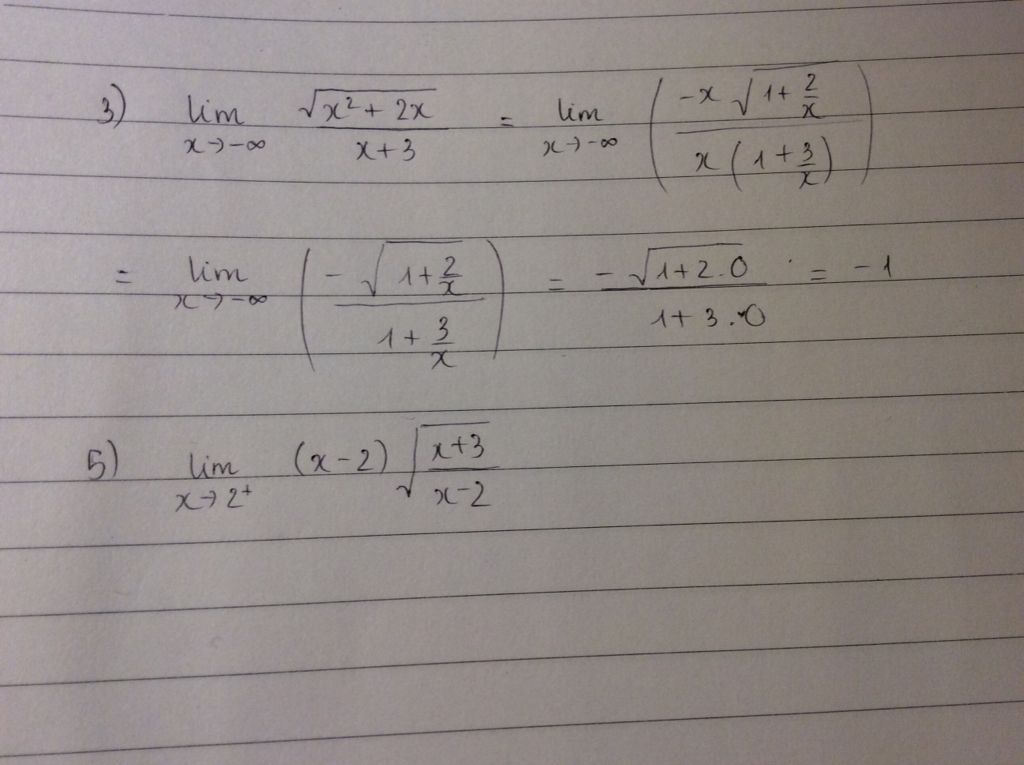 3) lim x→-∞ √(x² + 2x) / (x+3) = lim x→-∞ ( -x √(1+ 2/x) / x(1+ 3/x) )
= lim x→-∞ ( -√(1+ 2/x) / (1+ 3/x) ) = -√(1+2.0) / (1+3.0) = -1
5) lim x→2⁺ (x-2) √((x+3)/(x-2))